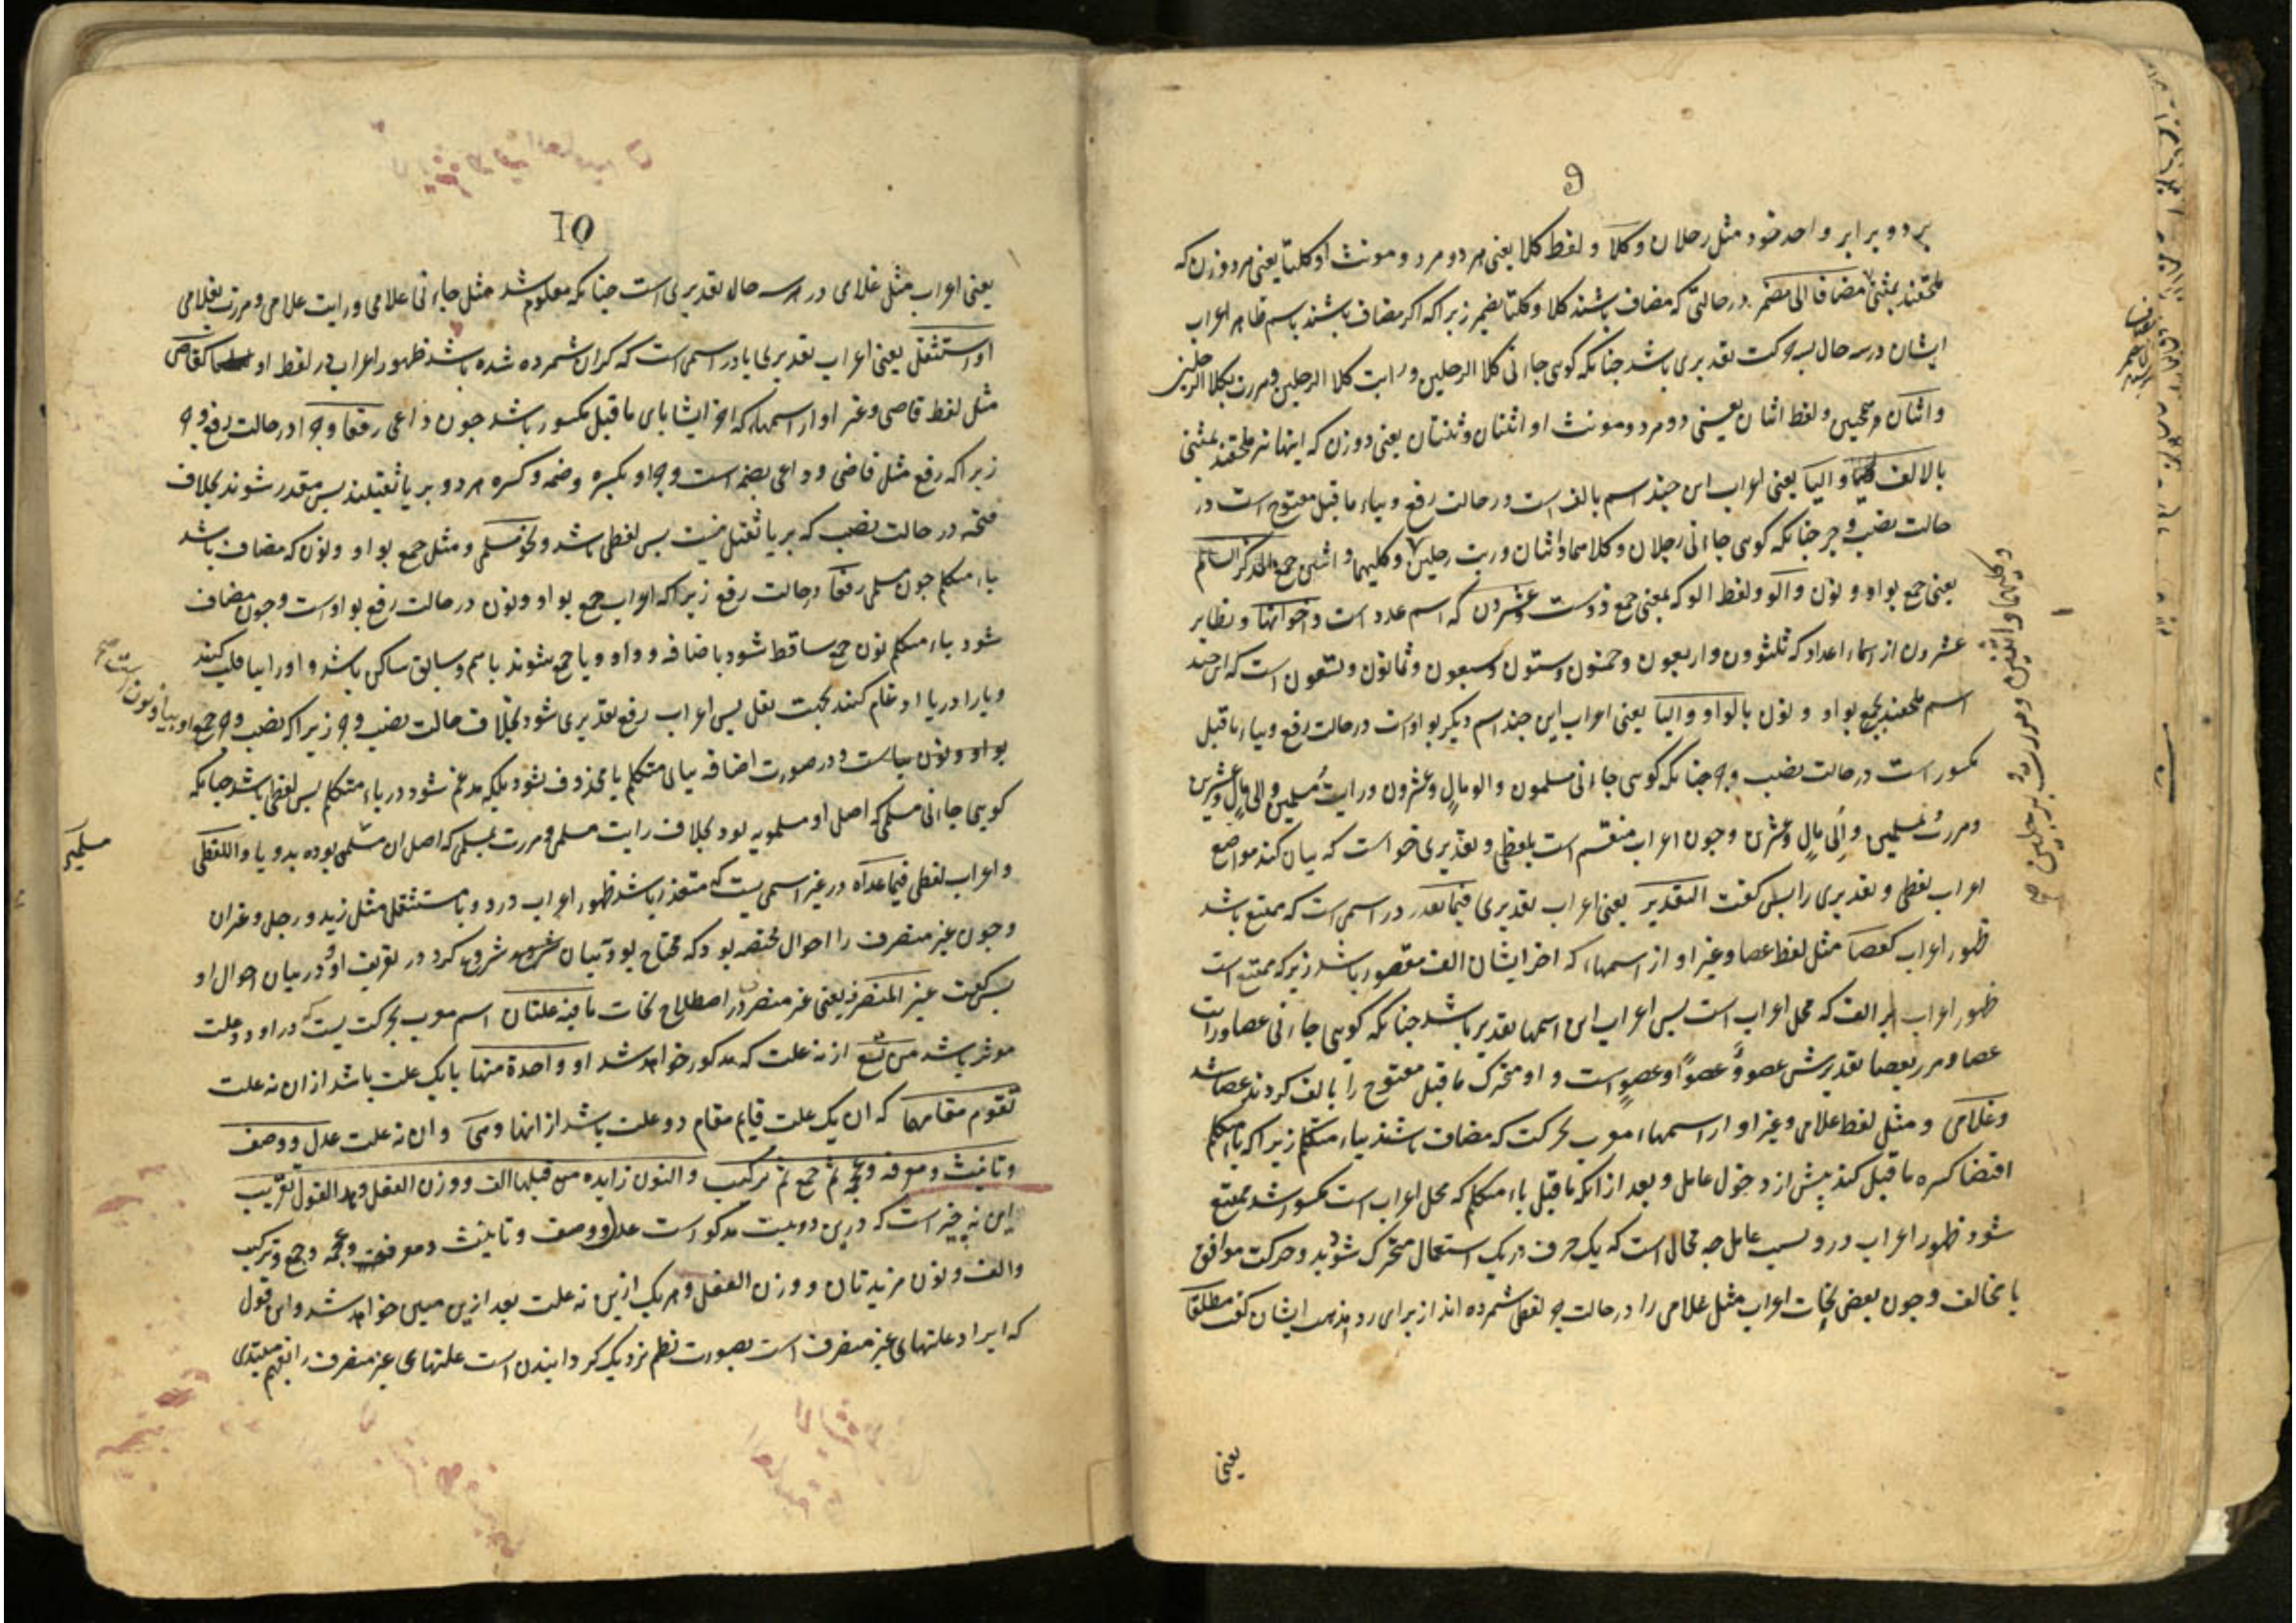 9
بر دو برابر واحد خود مثل رجلان و کلا و لفظ کلا یعنی هر دو مرد و مونث او کلتا یعنی هر دو زن که
ملحقند بمثنی مضافا الی مضمر در حالتی که مضاف باشند کلا و کلتا بضمیر زیرا که اکر مضاف باشند باسم ظاهر اعراب
ایشان در سه حال بسه حرکت تقدیری باشد جنانکه کویی جاءنی کلا الرجلین و رایت کلا الرجلین و مررت بکلا الرجلین
و اثنان و لفظ اثنان یعنی دو مرد و مونث او اثنتان و ثنتان یعنی دو زن که اینها نیز ملحقند بمثنی
بالالف و الیا یعنی اعراب این جند اسم بالف است در حالت رفع و بیاء ما قبل مفتوح است در
حالت نصب و جر جنانکه کویی جاءنی رجلان و کلاهما و اثنان و رایت رجلین و کلیهما و اثنین جمع المذکر السالم
یعنی جمع بواو و نون و الو و لفظ الو که بمعنی جمع ذوست و عشرون که اسم عدد است و اخواتها و نظایر
عشرون از اسماء اعداد که ثلثون و اربعون و خمسون و ستون و سبعون و ثمانون و تسعون است که این جند
اسم ملحقند بجمع بواو و نون بالواو و الیا یعنی اعراب این جند اسم دیکر بواو است در حالت رفع و بیاء ما قبل
مکسور است در حالت نصب و جر جنانکه کویی جاءنی مسلمون و الو مال و عشرون و رایت مسلمین و الی مال و عشرین
و مررت بمسلمین و الی مال و عشرین و جون اعراب منقسم است بلفظی و تقدیری خواست که بیان کند مواضع
اعراب لفظی و تقدیری را پس کفت التقدیر یعنی اعراب تقدیری فیما تعذر در اسمی است که ممتنع باشد
ظهور اعراب کعصا مثل لفظ عصا و غیر او از اسمهاء که اخر ایشان الف مقصور باشد زیرکه ممتنع است
ظهور اعراب بر الف که محل اعراب است پس اعراب این اسمها تقدیر باشد جنانکه کویی جاءنی عصا و رایت
عصا و مرر بعصا تقدیرش عصو و عصوا و عصو است و او متحرک ما قبل مفتوح را بالف کردند عصا شد
و غلامی و مثل لفظ غلامی و غیر او از اسمهاء معرب بحرکت که مضاف باشند بیاء متکلم زیرا که یاء متکلم
اقتضا کسره ما قبل کند پیش از دخول عامل و بعد از انکه ما قبل یاء متکلم که محل اعراب است مکسور شد ممتنع
شود ظهور اعراب درو بسبب عامل جه محال است که یک حرف در یک استعمال متحرک شود بدو حرکت موافق
یا مخالف و جون بعض نحات اعراب مثل غلامی را در حالت جر لفظی شمرده اند از برای رد مذهب ایشان کفت مطلقا
یعنی
و کلیهما و اثنین و مررت برجلین صح
10
یعنی اعراب مثل غلامی در هر سه حال تقدیری است جنانکه معلوم شد مثل جاءنی غلامی و رایت غلامی و مررت بغلامی
او استثقل یعنی اعراب تقدیری یا در اسمی است که کران شمرده شده باشد ظهور اعراب در لفظ او کقاض
مثل لفظ قاضی و غیر او از اسمهاء که اخر ایشا یای ما قبل مکسور باشد جون داعی رفعا و جرا در حالت رفع و جر
زیرا که رفع مثل قاضی و داعی بضمه است و جر او بکسره و ضمه و کسره هر دو بر یا ثقیلند پس مقدر شوند بخلاف
فتحه در حالت نصب که بر یا ثقیل نیست پس لفظی باشد و نحو مسلمی و مثل جمع بواو و نون که مضاف باشد
یاء متکلم جون مسلمی رفعا در حالت رفع زیرا که اعراب جمع بواو و نون در حالت رفع بواو است و جون مضاف
شود بیاء متکلم نون جمع ساقط شود باضافه و واو و یا جمع شوند باهم و سابق ساکن باشد و او را بیا قلب کنند
و یا را در یا ادغام کنند بجهت ثقل پس اعراب رفع تقدیری شود بخلاف حالت نصب و جر زیرا که نصب و جر جمع
بواو و نون بیاست و در صورت اضافه بیای متکلم یا محذوف نشود بلکه مدغم شود در یاء متکلم پس لفظی باشد جنانکه
کویی جاءنی مسلمی که اصل او مسلمویه بود بخلاف رایت مسلمی و مررت بمسلمی که اصل ان مسلمیی بوده بدو یا و اللفظی
و اعراب لفظی فیما عداه در غیر اسمی یست که متعذر باشد ظهور اعراب درو و یا مستثقل مثل زید و رجل و غیر ان
و جون غیر منصرف را احوال مختصه بود که محتاج بود ببیان شروع کرد در تعریف او و در بیان احوال او
پس کفت غیر المنصرف یعنی غیر منصرف در اصطلاح نحات ما فیه علتان اسم معرب بحرکت یست که در او دو علت
موثر باشد من تسع از نه علت که مذکور خواهد شد او واحدة منها یا یک علت باشد از ان نه علت
تقوم مقامهما که ان یک علت قایم مقام دو علت باشد از انها و هی و ان نه علت عدل و وصف
و تانیث و معرفه و عجمه ثم جمع ثم ترکیب و النون زایده من قبلها الف و وزن الفعل و هذا القول تقریب
این نه چیز است که درین دو بیت مذکور است عدل و وصف و تانیث و معرفه و عجمه و جمع و ترکیب
و الف و نون مزیدتان و وزن الفعل و هر یک ازین نه علت بعد ازین مبین خواهد شد و این قول
که ایراد علتهای غیر منصرف است بصورت نظم نزدیک کردانیدن است علتهای غیر منصرف را بفهم مبتدی